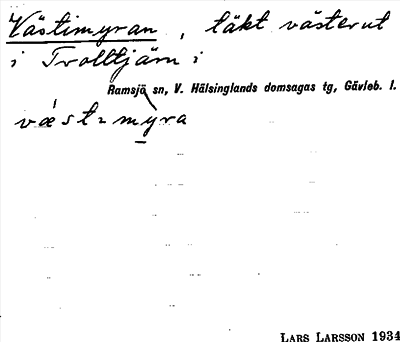 Västimyran, täkt västerut
i Trolltjärn i
Ramsjö sn, V. Hälsinglands domsagas tg, Gävleb. l.
væ̀st2myra
LARS LARSSON 1934